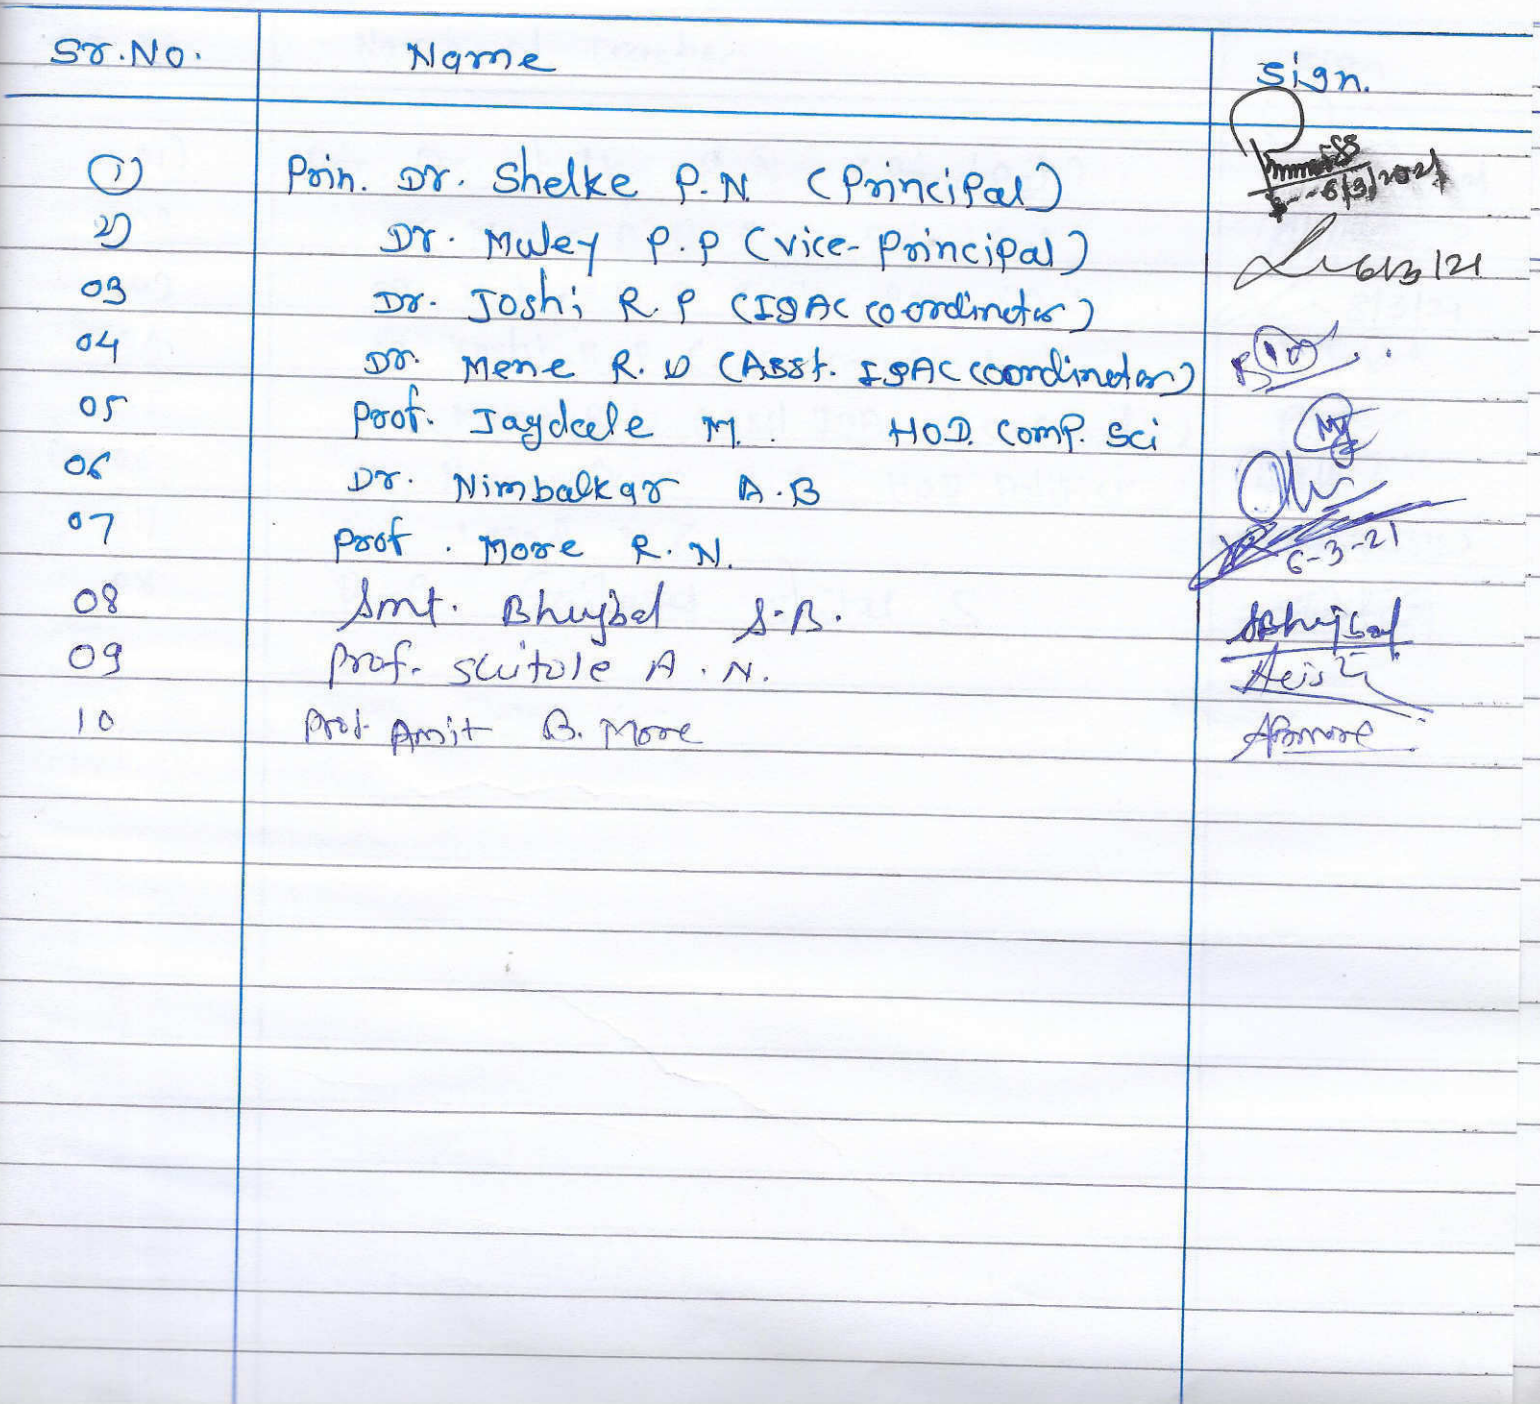 Sr.No. Name Sign.
1) Prin. Dr. Shelke P.N. (Principal)
6/3/2021
2) Dr. Muley P.P (Vice-Principal) 6/3/21
03 Dr. Joshi R.P (IQAC coordinator)
04 Dr. Mene R.D (Asst. IQAC coordinator)
05 Prof. Jagdale M. HOD. Comp. Sci
06 Dr. Nimbalkar A.B
07 Prof. More R.N. 6-3-21
08 Smt. Bhujbal S.B. SBhujbal
09 Prof. Shitole A.N.
10 Prof. Amit B. More ABmore